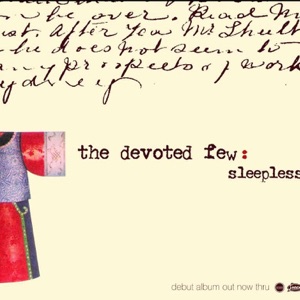 be over. Read M
st. After Tea Mr Sheeth
he does not seem to
any prospects of work
the devoted few:
sleepless
debut album out now thru